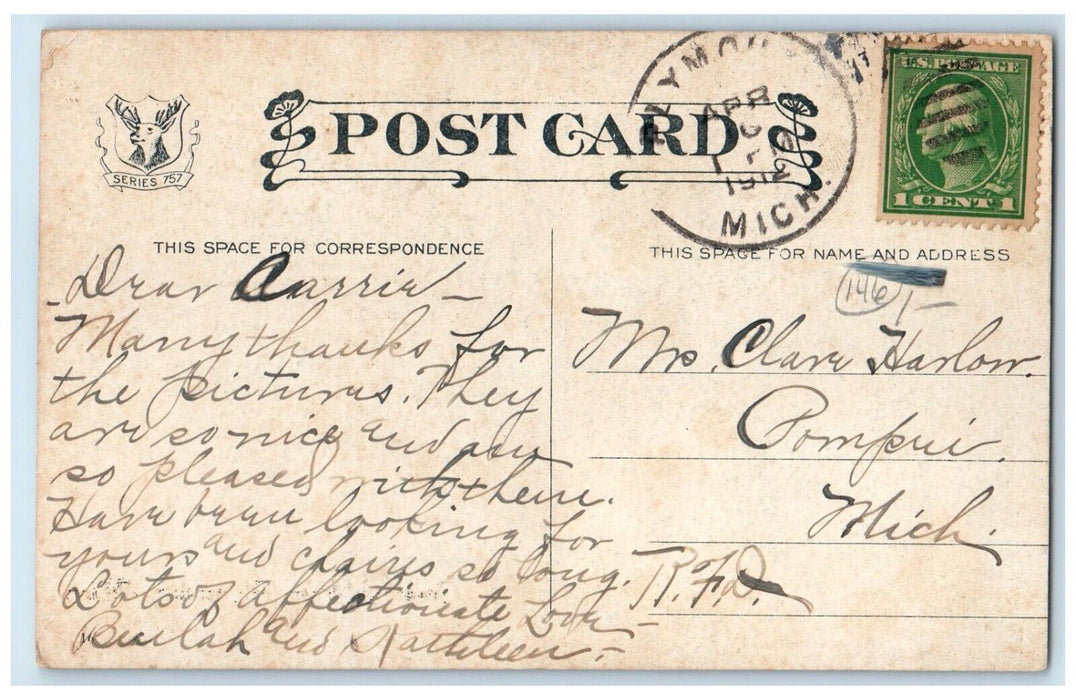 POST CARD
SERIES 757
PLYMOU
APR
1 PM
1912
MICH.
U.S. POSTAGE
1 CENT 1
THIS SPACE FOR CORRESPONDENCE
THIS SPACE FOR NAME AND ADDRESS
146/-
Dear Carrie –
Many thanks for
the pictures. They
are so nice and am
so pleased with them.
Have been looking for
yours and claires so long.
Lots of affectionate Love –
Beulah and Kathleen –
16
Mrs. Clare Harlow.
Pompeii.
Mich.
R.F.D.